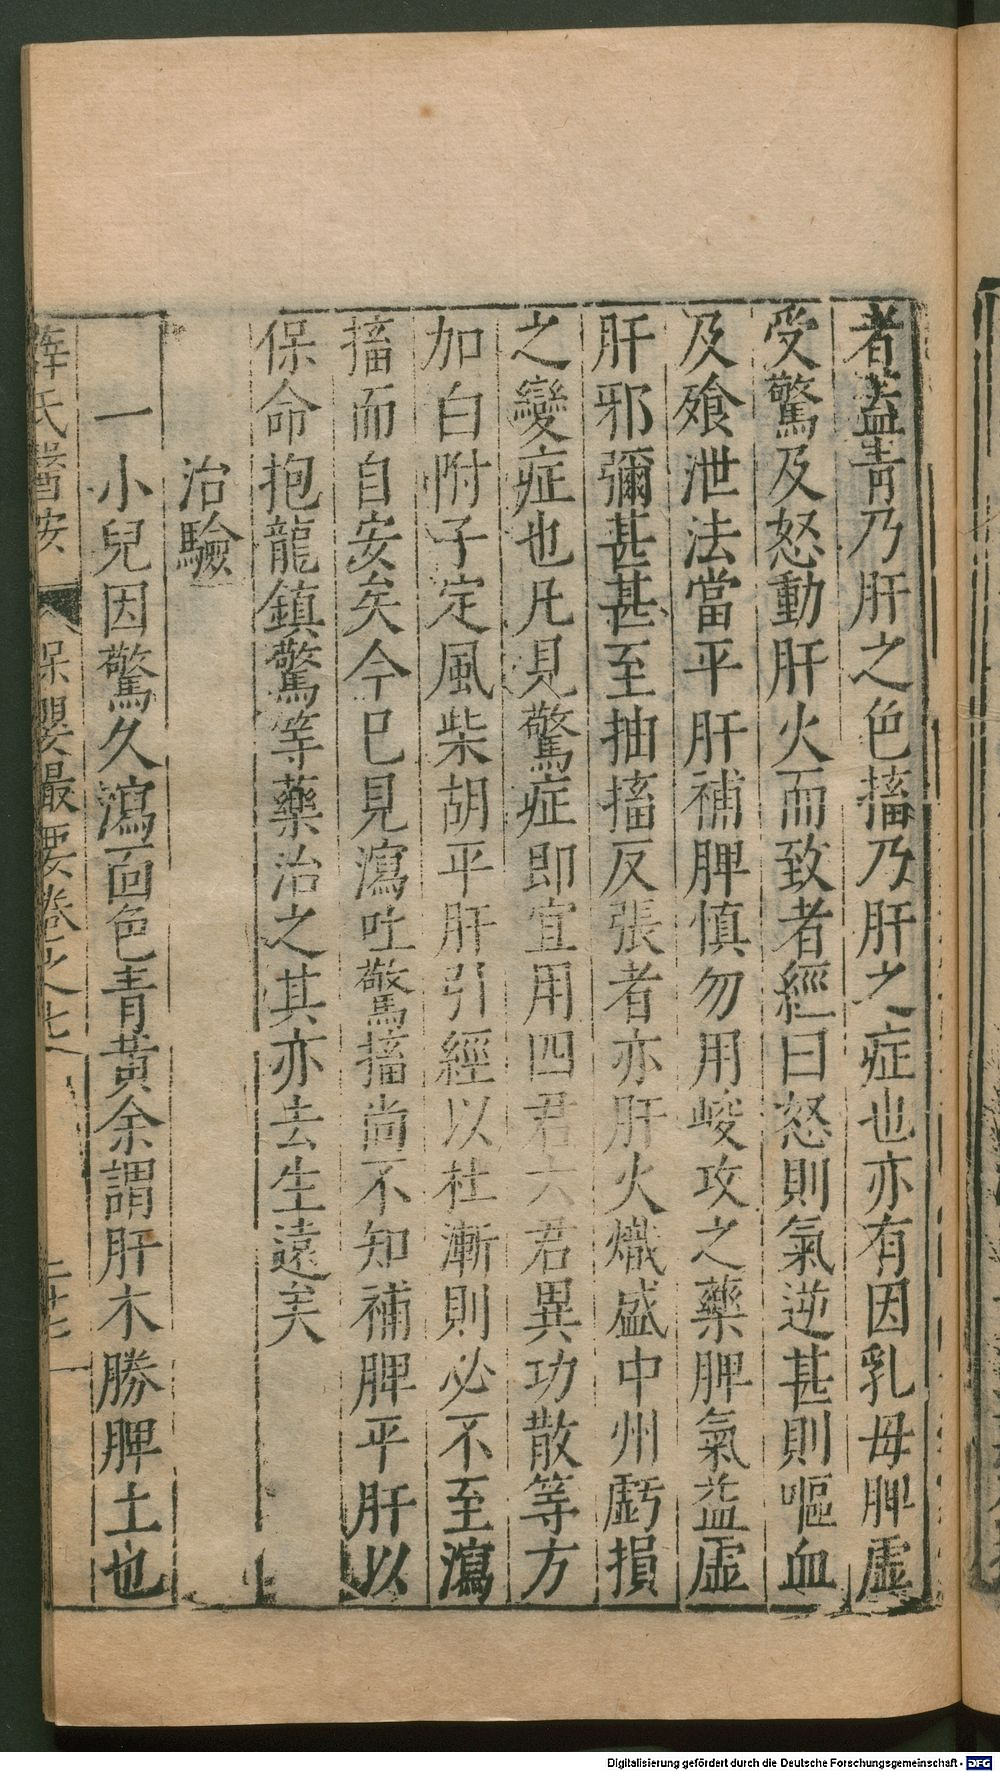 者蓋青乃肝之色搐乃肝之症也亦有因乳母脾虛
受驚及怒動肝火而致者經曰怒則氣逆甚則嘔血
及飱泄法當平肝補脾慎勿用峻攻之藥脾氣益虛
肝邪彌甚甚至抽搐反張者亦肝火熾盛中州虧損
之變症也凡見驚症即宜用四君六君異功散等方
加白附子定風柴胡平肝引經以杜漸則必不至瀉
搐而自安矣今已見瀉吐驚搐尚不知補脾平肝以
保命抱龍鎮驚等藥治之其亦去生遠矣
治驗
一小兒因驚久瀉面色青黃余謂肝木勝脾土也
薛氏醫按 保嬰撮要卷之七 二十七
Digitalisierung gefördert durch die Deutsche Forschungsgemeinschaft - DFG